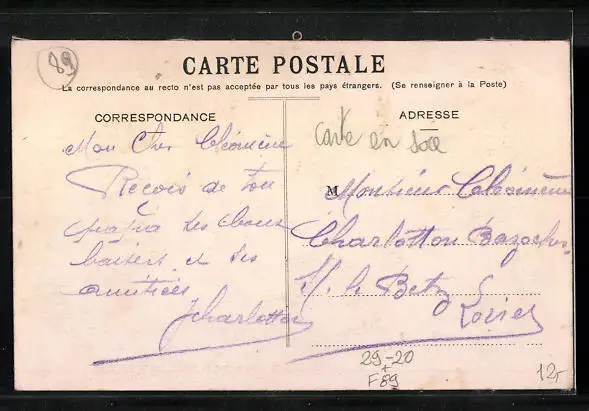 89
CARTE POSTALE
La correspondance au recto n'est pas acceptée par tous les pays étrangers. (Se renseigner à la Poste)
CORRESPONDANCE
ADRESSE
carte en soie
Mon Cher Chéomène
Reçois de ton
papa ses bons
baisers et ses
amitiés
JCharlotton
M Monsieur Chéomène
Charlotton Bazoches
S/ le Betz
Loiret
29-20
+
F89
12,-